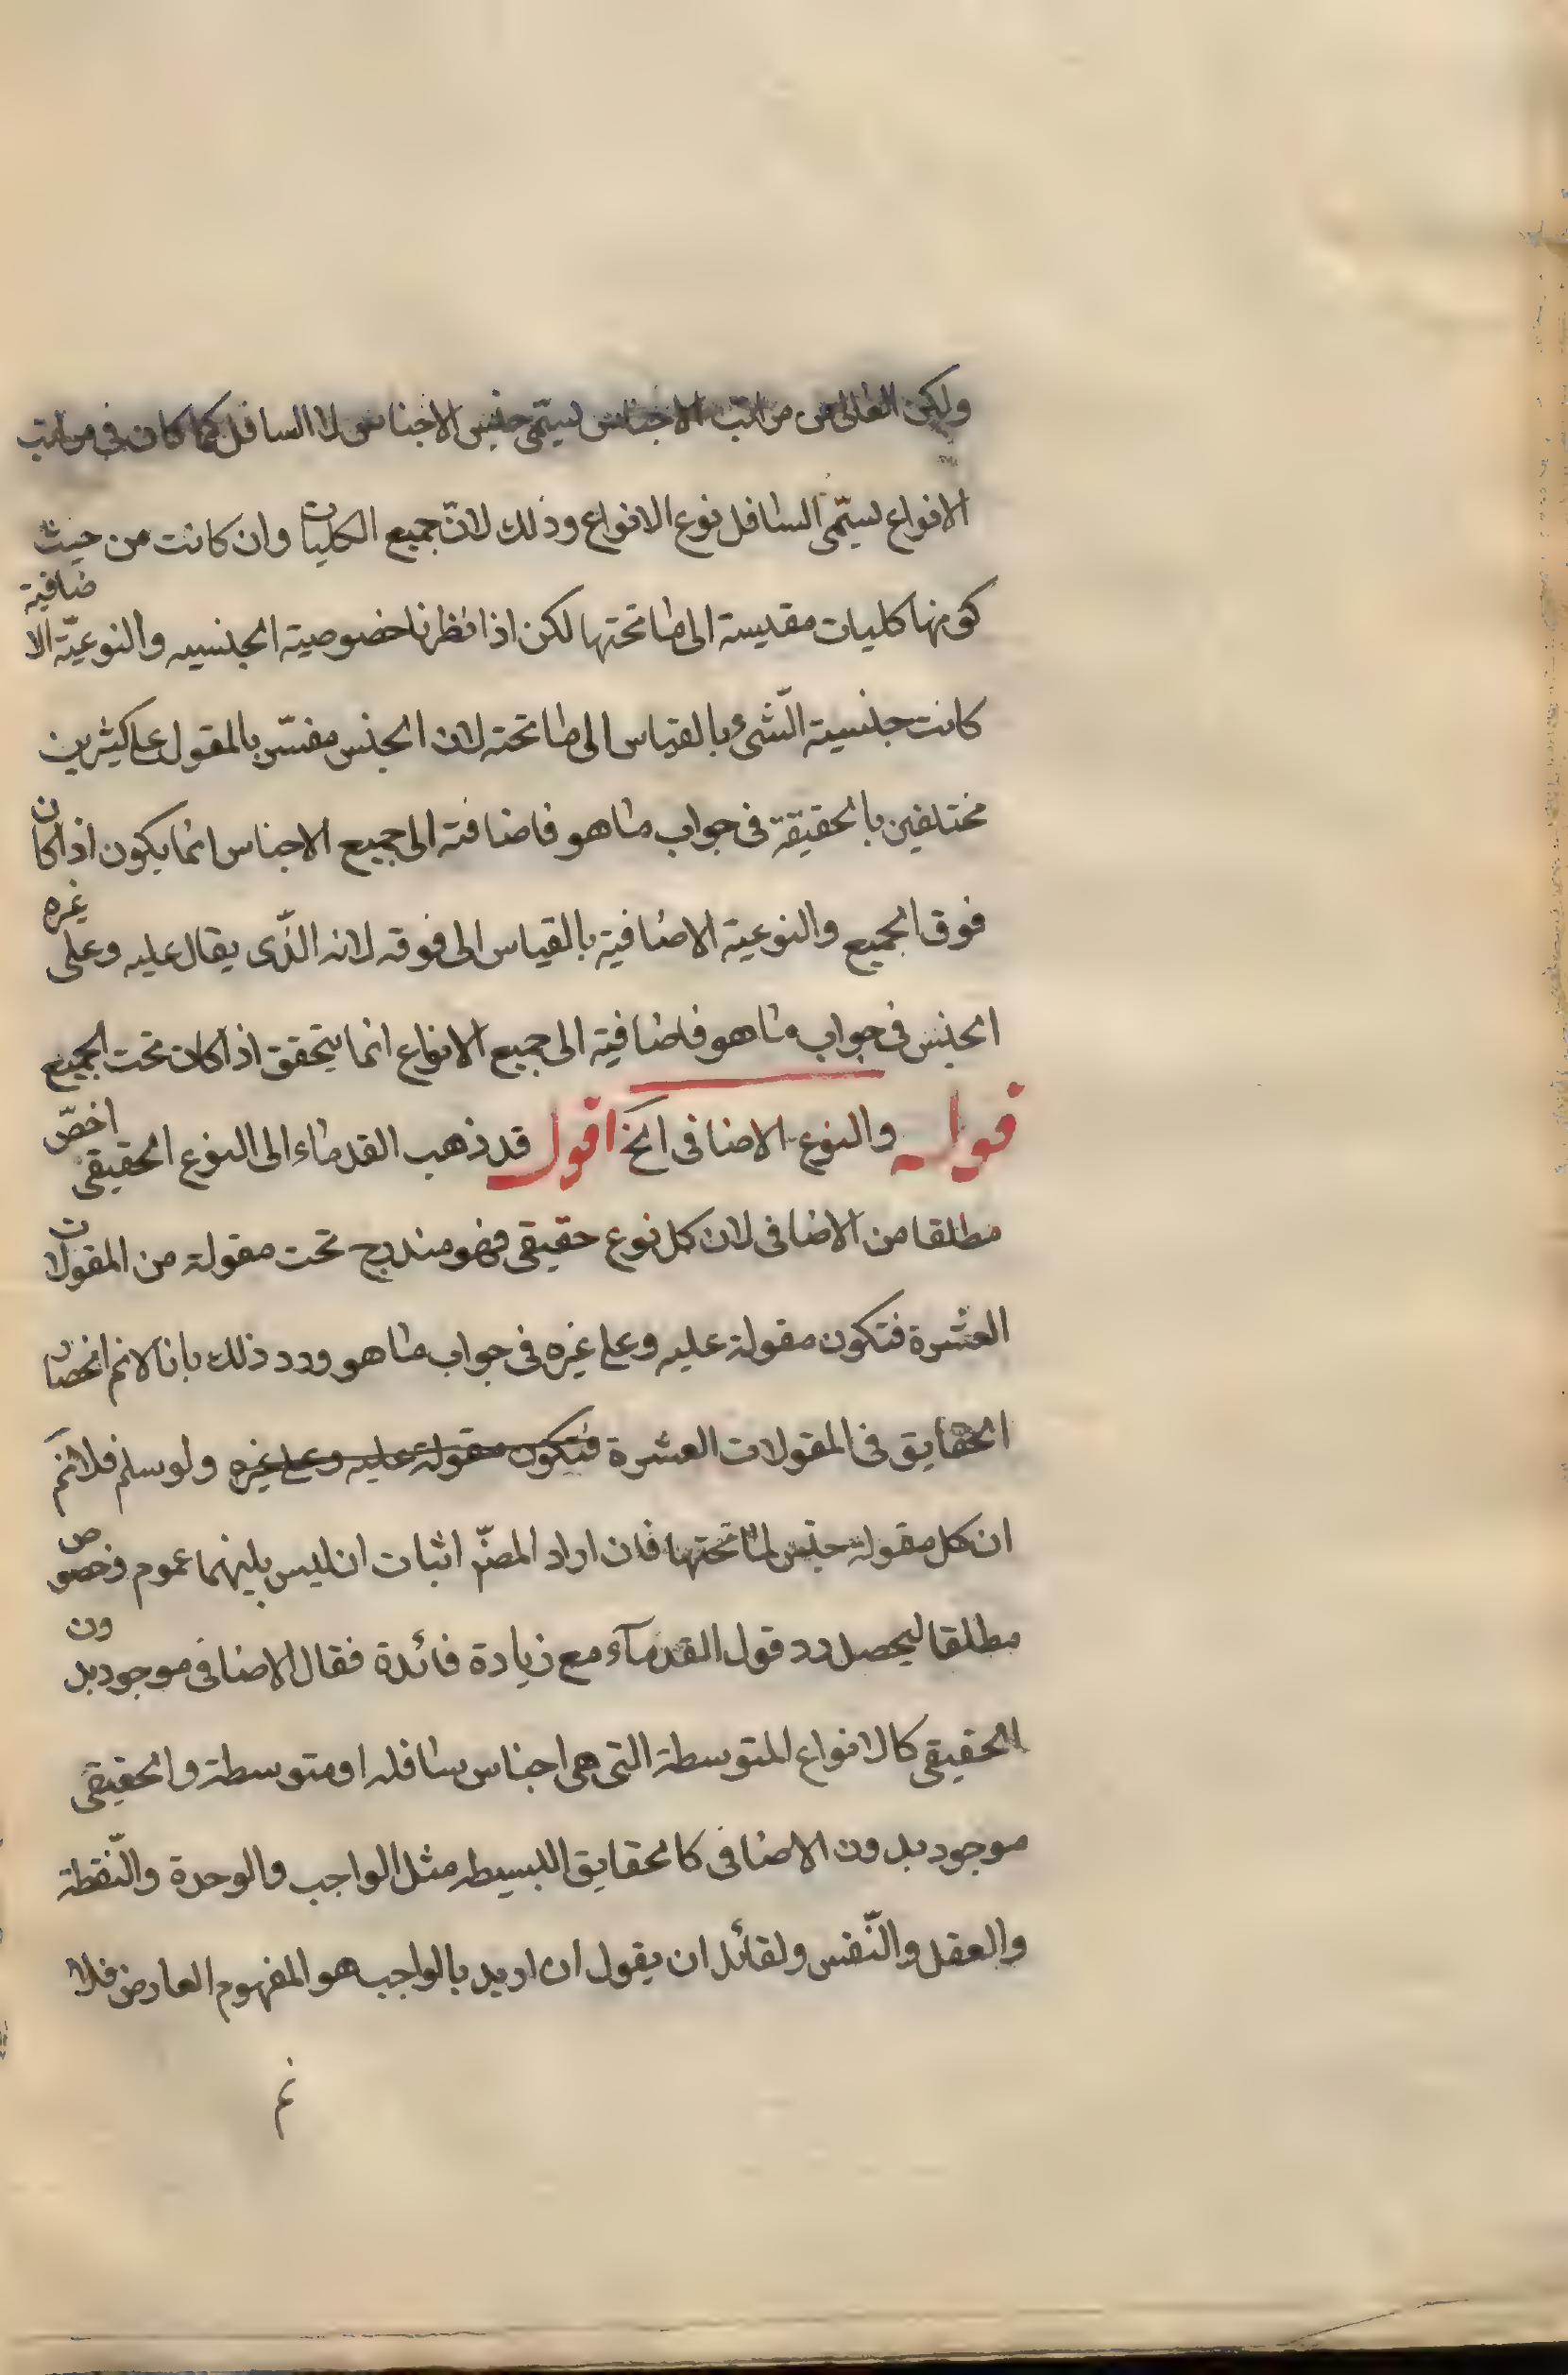 ولكن العالى من مراتب الاجناس ليسمّى جنس الاجناس لا السافل كما كان فى مراتب
الانواع ليسمّى السافل نوع الانواع وذلك لانّ جميع الكليات وان كانت من حيث
كونها كليات مقيسة الى ما تحتها لكن اذا نظرنا خصوصية الجنسيه والنوعيّة الاضافية
كانت جنسية الشّىء بالقياس الى ما تحته لان الجنس مفسّر بالمقول على كثيرين
مختلفين بالحقيقة فى جواب ما هو فاضافته الى جميع الاجناس انما يكون اذا كان
فوق الجميع والنوعية الاضافية بالقياس الى فوقه لانه الذّى يقال عليه وعلى غيره
الجنس فى جواب ما هو فاضافيته الى جميع الانواع انما يتحقق اذا كان تحت الجميع
قوله والنوع الاضافى الخ اقول قد ذهب القدماء الى النوع الحقيقى اخصّ
مطلقا من الاضافى لان كل نوع حقيقى فهو مندرج تحت مقولة من المقولات
العشرة فتكون مقولة عليه وعلى غيره فى جواب ما هو ورد ذلك بانا لا نم انحصار
الحقايق فى المقولات العشرة فتكون مقولة عليه وعلى غيره ولو سلم فلا نم
ان كل مقولة جنس لما تحتها فان اراد المصنّ اثبات ان ليس بينهما عموم وخصوص
مطلقا ليحصل رد قول القدمآء مع زيادة فائدة فقال الاضافى موجود بدون
الحقيقى كالانواع المتوسطة التى هى اجناس سافله او متوسطة والحقيقى
موجود بدون الاضافى كالحقايق البسيطه مثل الواجب والوحدة والنّقطة
والعقل والنّفس ولقائل ان يقول ان اريد بالواجب هو المفهوم العارض فلا
نم